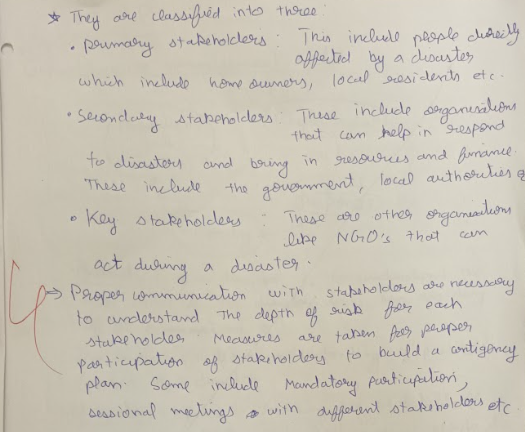 * They are classified into three:
• primary stakeholders : This include people directly
affected by a disaster
which include home owners, local residents etc.
• Secondary stakeholders : These include organisations
that can help in respond
to disasters and bring in resources and finance.
These include the government, local authorities
• Key stakeholders : These are other organisations
like NGO's that can
act during a disaster.
→ Proper communication with stakeholders are necessary
to understand the depth of risk for each
stakeholder. Measures are taken for proper
participation of stakeholders to build a contigency
plan. Some include Mandatory participation,
sessional meetings with different stakeholders etc.